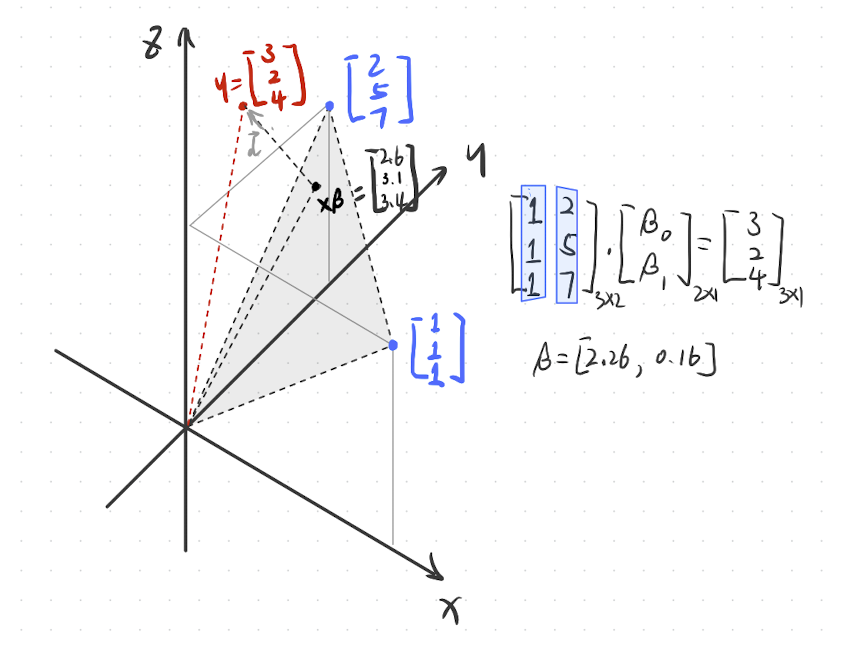 Z
y = [3 2 4]
[2 5 7]
y
xβ = [2.6 3.1 3.4]
[1 2
1 5
1 7]3x2 · [β0 β1]2x1 = [3 2 4]3x1
[1 1 1]
β = [2.26, 0.16]
x